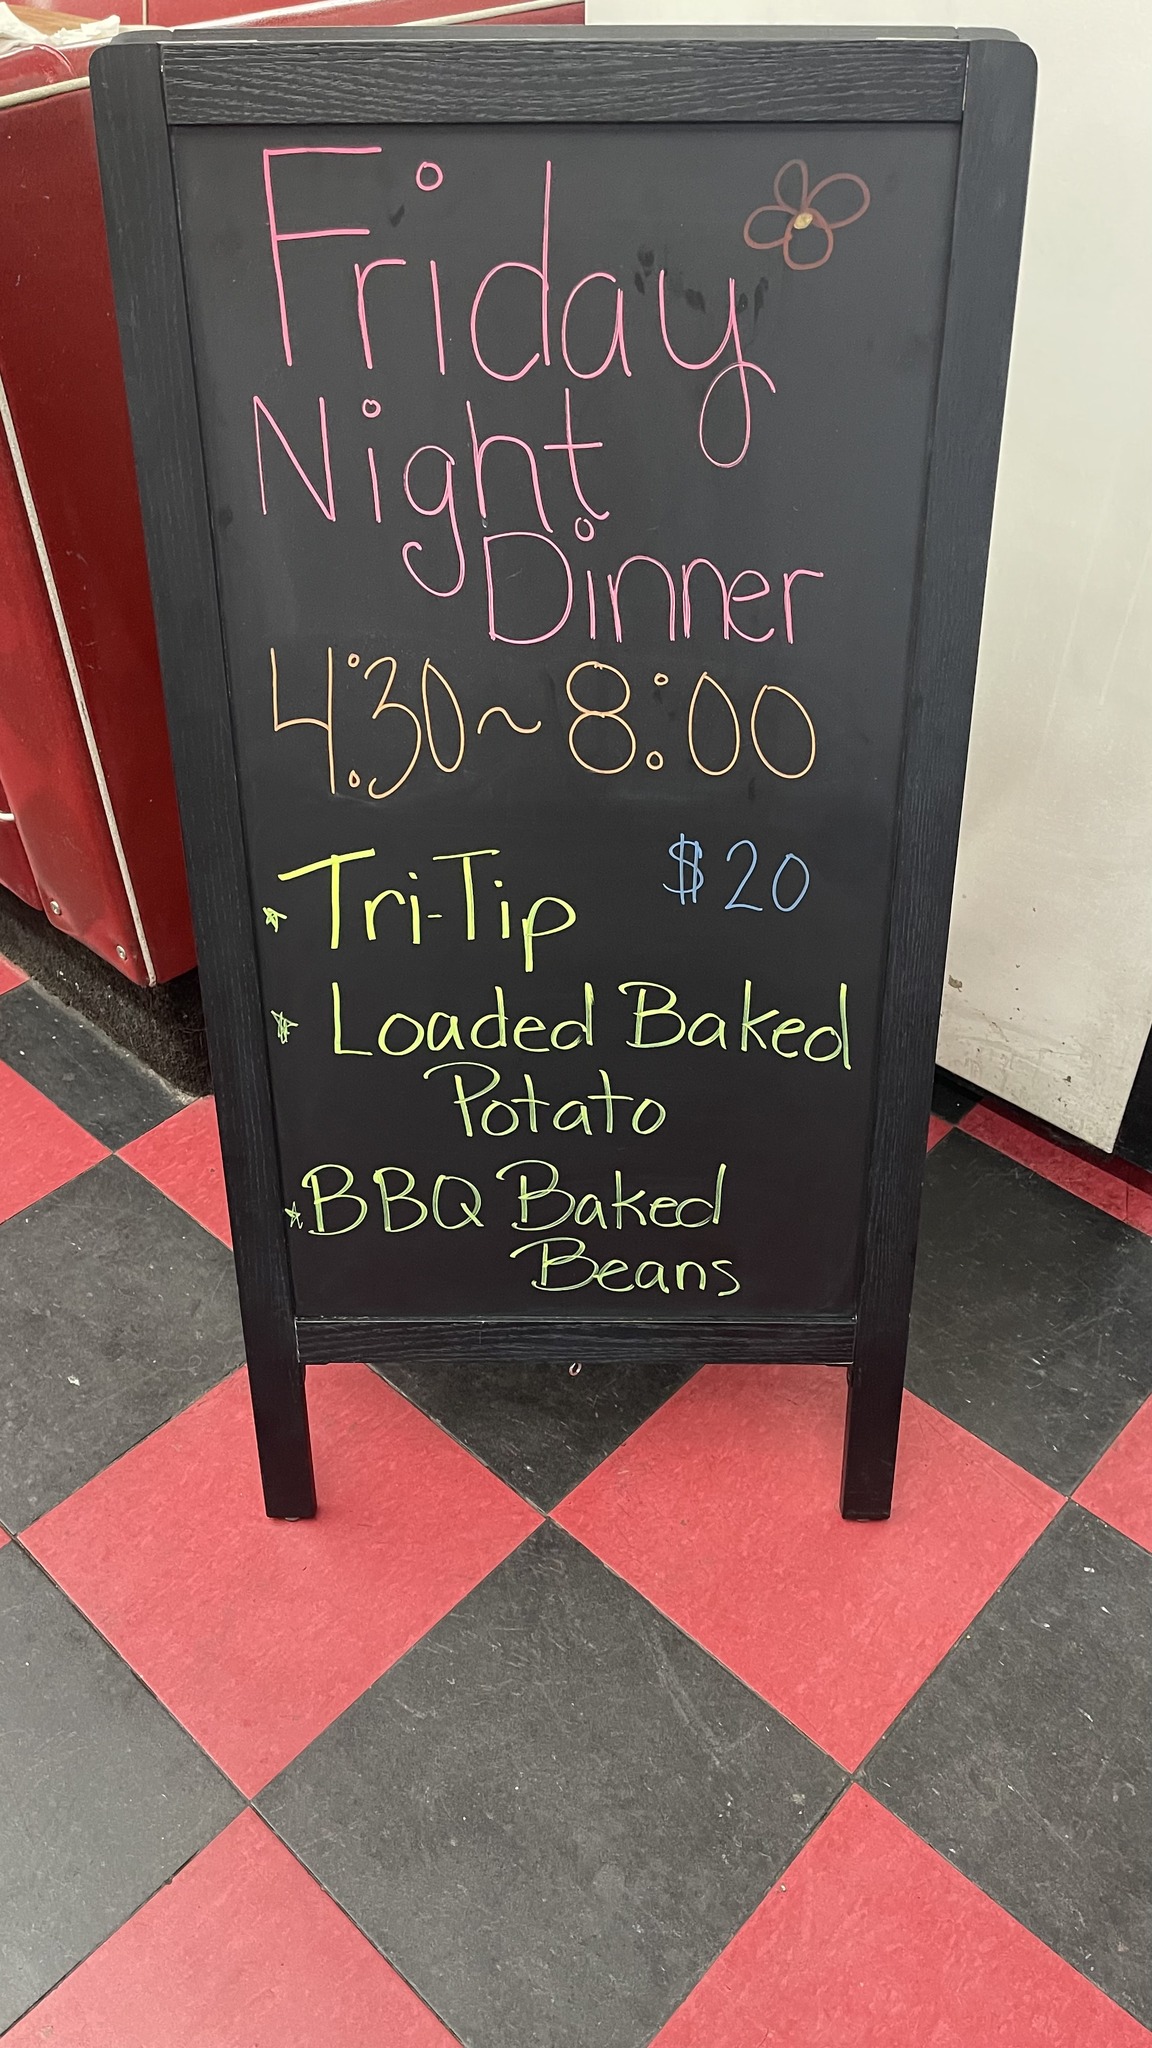 Friday
Night
Dinner
4:30~8:00
Tri-Tip $20
Loaded Baked
Potato
BBQ Baked
Beans